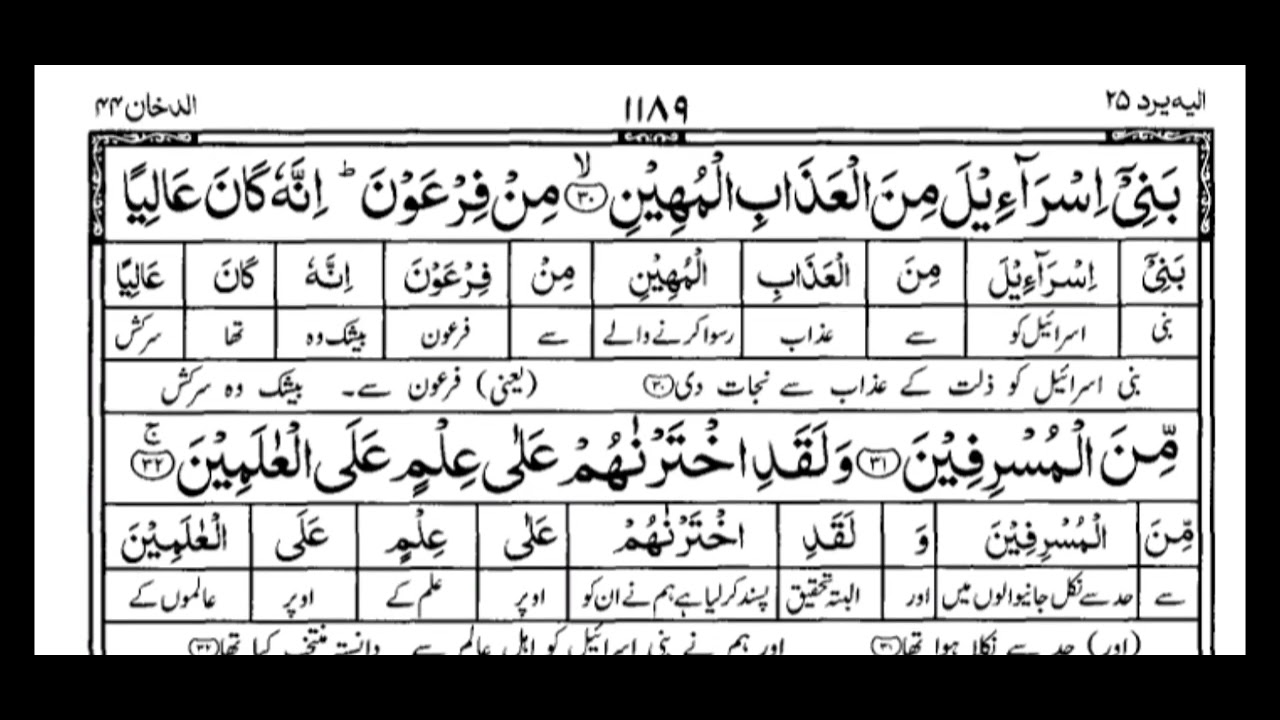 الیه یرد ۲۵ ۱۱۸۹ الدخان ۴۴
بَنِیْۤ اِسْرَآءِیْلَ مِنَ الْعَذَابِ الْمُهِیْنِ ﴿۳۰﴾ۙ مِنْ فِرْعَوْنَ ؕ اِنَّهٗ كَانَ عَالِیًا
بَنِیْۤ اِسْرَآءِیْلَ مِنَ الْعَذَابِ الْمُهِیْنِ مِنْ فِرْعَوْنَ اِنَّهٗ كَانَ عَالِیًا
بنی اسرائیل کو سے عذاب رسوا کرنے والے سے فرعون بیشک وہ تھا سرکش
بنی اسرائیل کو ذلت کے عذاب سے نجات دی ﴿۳۰﴾ (یعنی) فرعون سے۔ بیشک وہ سرکش
مِّنَ الْمُسْرِفِیْنَ ﴿۳۱﴾ وَلَقَدِ اخْتَرْنٰهُمْ عَلٰی عِلْمٍ عَلَی الْعٰلَمِیْنَ ﴿۳۲﴾ۚ
مِّنَ الْمُسْرِفِیْنَ وَ لَقَدِ اخْتَرْنٰهُمْ عَلٰی عِلْمٍ عَلَی الْعٰلَمِیْنَ
سے حد سے نکل جانیوالوں میں اور البتہ تحقیق پسند کر لیا ہے ہم نے ان کو اوپر علم کے اوپر عالموں کے
(اور) حد سے نکلا ہوا تھا ﴿۳۱﴾ اور ہم نے بنی اسرائیل کو اہل عالم سے دانستہ منتخب کیا تھا ﴿۳۲﴾